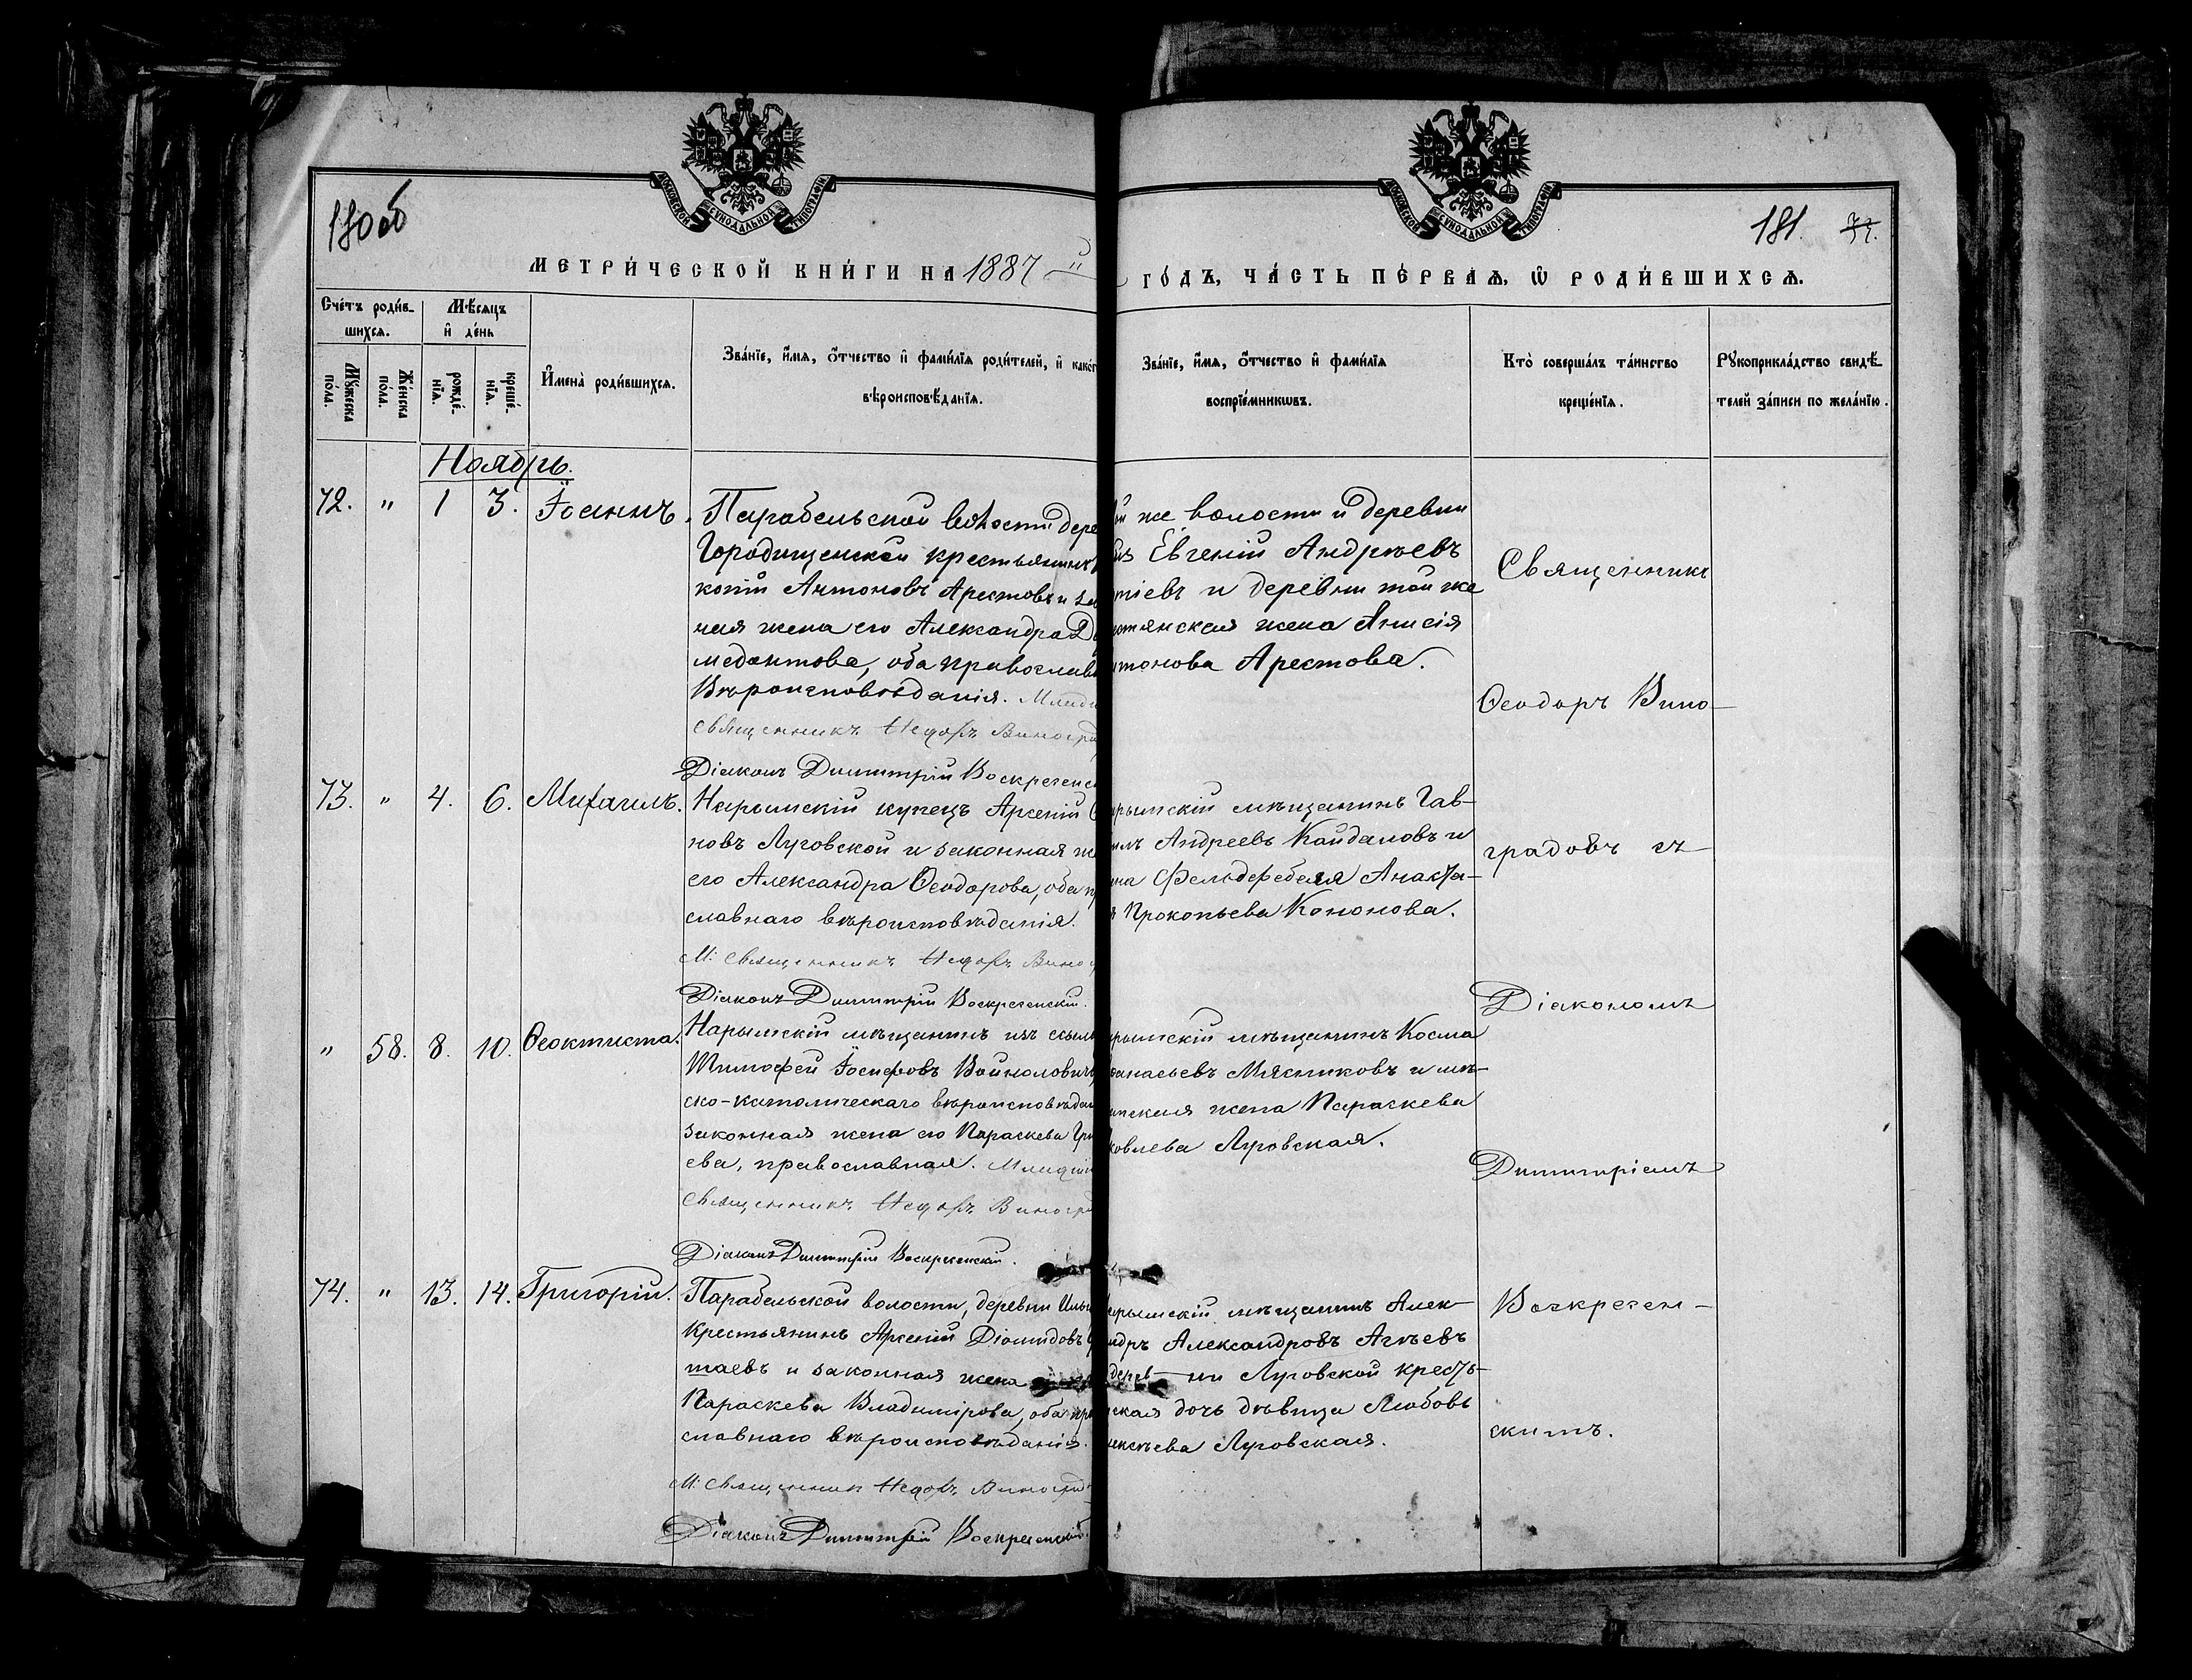 180 об
181.
МОСКОВСКОЙ СѴНОДАЛЬНОЙ ТИПОГРАФІИ
МОСКОВСКОЙ СѴНОДАЛЬНОЙ ТИПОГРАФІИ
МЕТРИ́ЧЕСКОЙ КНИ́ГИ НА 1887 й
ГО́ДЪ, ЧА́СТЬ ПЕ́РВАѦ, Ѽ РОДИ́ВШИХСѦ.
Сче́тъ роди́в-
шихсѧ.
Мѣ́сѧцъ
и҆ де́нь
Мꙋ́жеска
по́ла.
Же́нска
по́ла.
рожде́-
нїѧ.
креще́-
нїѧ.
И҆мена̀ роди́вшихсѧ.
Зва́нїе, и҆́мѧ, ѻ҆́тчество и҆ фами́лїѧ роди́телей, и҆ како́г
вѣроисповѣ́данїѧ.
Зва́нїе, и҆́мѧ, ѻ҆́тчество и҆ фами́лїѧ
воспрїе́мникѡвъ.
Кто̀ соверша́лъ та́инство
креще́нїѧ.
Рꙋкоприкла́дство свидѣ́-
телей за́писи по жела́нїю.
Ноябрь.
72. " 1 3. Іоаннъ.
Парабельской волости дере
Городищенской крестьянинъ
копій Антоновъ Арестовъ и за
ная жена его Александра Д
медонтова, оба православн
Вѣроисповѣданія. Млад
священникъ Ѳедоръ Виногра
Діаконъ Димитрій Воскресенс
й же волости и деревни
Евгеній Андрѣевъ
тіевъ и деревни той же
стьянская жена Анисія
нтонова Арестова.
73. " 4. 6. Михаилъ.
Нарымскій купецъ Арсеній
новъ Луговской и законная ж
его Александра Ѳеодорова, оба п
славнаго вѣроисповѣданія.
М: священникъ Ѳедоръ Виног
Діаконъ Димитрій Воскресенскій.
рымскій мѣщанинъ Гав-
илъ Андреевъ Кайдаловъ и
на Фельдфебеля Анаста-
Прокопьева Кононова.
" 58. 8. 10. Ѳеоктиста.
Нарымскій мѣщанинъ изъ ссыль
Тимофей Іосифовъ Войноловичъ
ско-католическаго вѣроисповѣдан
законная жена его Параскева Гри
ева, православная. Младшій
Священникъ Ѳедоръ Виногра
Діаконъ Димитрій Воскресенскій.
рымскій мѣщанинъ Косма
фанасьевъ Мясниковъ и мѣ-
анская жена Параскева
ковлева Луговская.
74. " 13. 14. Григорій.
Парабельской волости, деревни Ильи
Крестьянинъ Арсеній Діомидовъ
таевъ и законная жена
Параскева Владимірова, оба пра
славнаго вѣроисповѣданія.
М: Священникъ Ѳедоръ Виноград
Діаконъ Димитрій Воскресенскій.
рымскій мѣщанинъ Алек-
ндръ Александровъ Агѣевъ
дерев-ни Луговской кресть-
нская дочь дѣвица Любовь
лексѣева Луговская.
Священникъ
Ѳеодоръ Вино-
градовъ съ
Діакономъ
Димитріемъ
Воскресен-
скимъ.